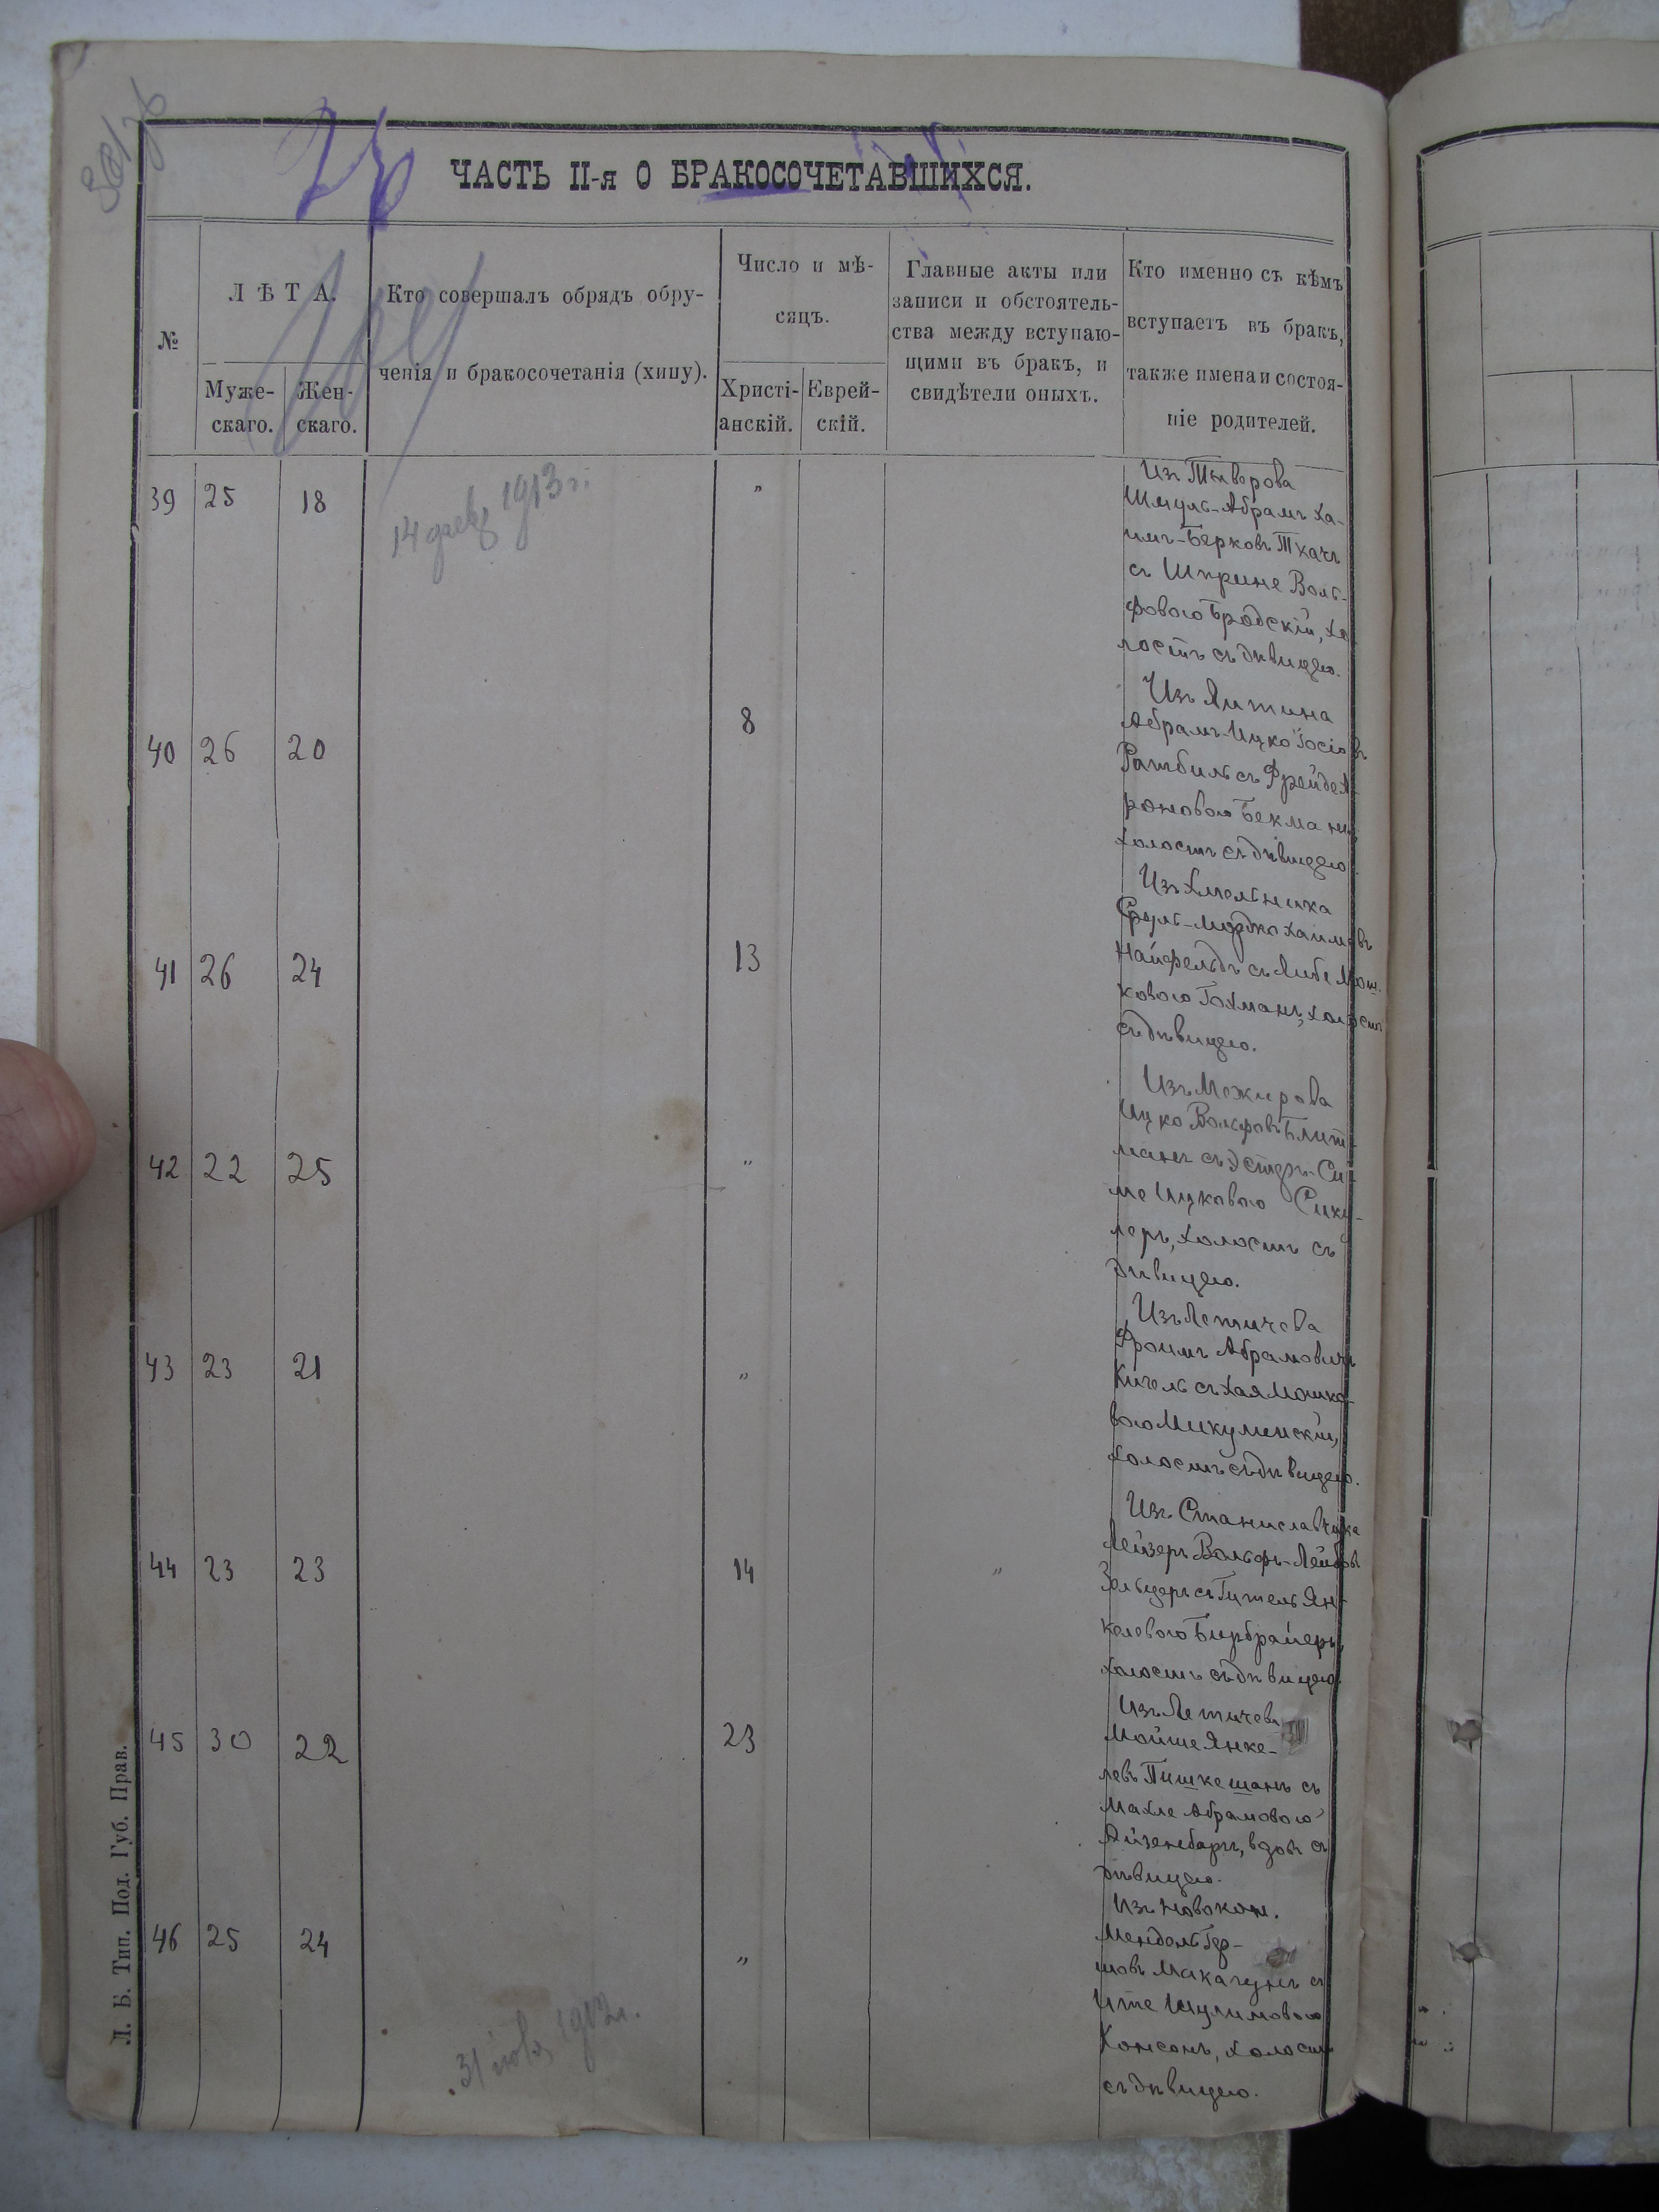 ЧАСТЬ II-я О БРАКОСОЧЕТАВШИХСЯ.
№
ЛѢТА.
Муже-
скаго.
Жен-
скаго.
Кто совершалъ обрядъ обру-
ченія и бракосочетанія (хипу).
Число и мѣ-
сяцъ.
Христі-
анскій.
Еврей-
скій.
Главные акты или
записи и обстоятель-
ства между вступаю-
щими въ бракъ, и
свидѣтели оныхъ.
Кто именно съ кѣмъ
вступаетъ въ бракъ,
также имена и состоя-
ніе родителей.
1913 г.
39 25 18 "
Изъ Тыврова
Шмуль-Абрамъ Ха-
имъ-Берковъ Ткачъ
съ Шприне Воль-
фовою Бродскій, хо
лостъ съ дѣвицею.
40 26 20 8
Изъ Литина
Абрамъ-Ицко Іосіовъ
Ратбиль съ Фрейде А-
роновою Бекманъ
холостъ съ дѣвицею.
41 26 24 13
Изъ Хмельника
Сруль-Мордко Хаимовъ
Найфельдъ съ Либе Мош-
ковою Гохманъ, холостъ
съ дѣвицею.
42 22 25 "
Изъ Межирова
Ицко Вольфовъ Блит-
манъ съ Эстеръ-Си-
ме Ицковою Сику-
леръ, холостъ съ
дѣвицею.
43 23 21 "
Изъ Летичева
Фроимъ Абрамовичъ
Кигель съ Хая Мошко-
вою Микулинскій,
холостъ съ дѣвицею.
44 23 23 14 "
Изъ Станиславчика
Лейзеръ Вольфъ-Лейбовъ
Зельцеръ съ Гитель Ян-
келевою Бирбраеръ,
холостъ съ дѣвицею.
45 30 22 23
Изъ Летичева
Мойше Янке-
левъ Пишкешанъ съ
Махле Абрамовою
Айзенбаръ, вдовъ съ
дѣвицею.
46 25 24 "
Изъ Новокон.
Мендель Гер-
шовъ Макагунъ съ
Ите Шулимовою
Консонъ, холостъ
съ дѣвицею.
Л. Б. Тип. Под. Губ. Прав.